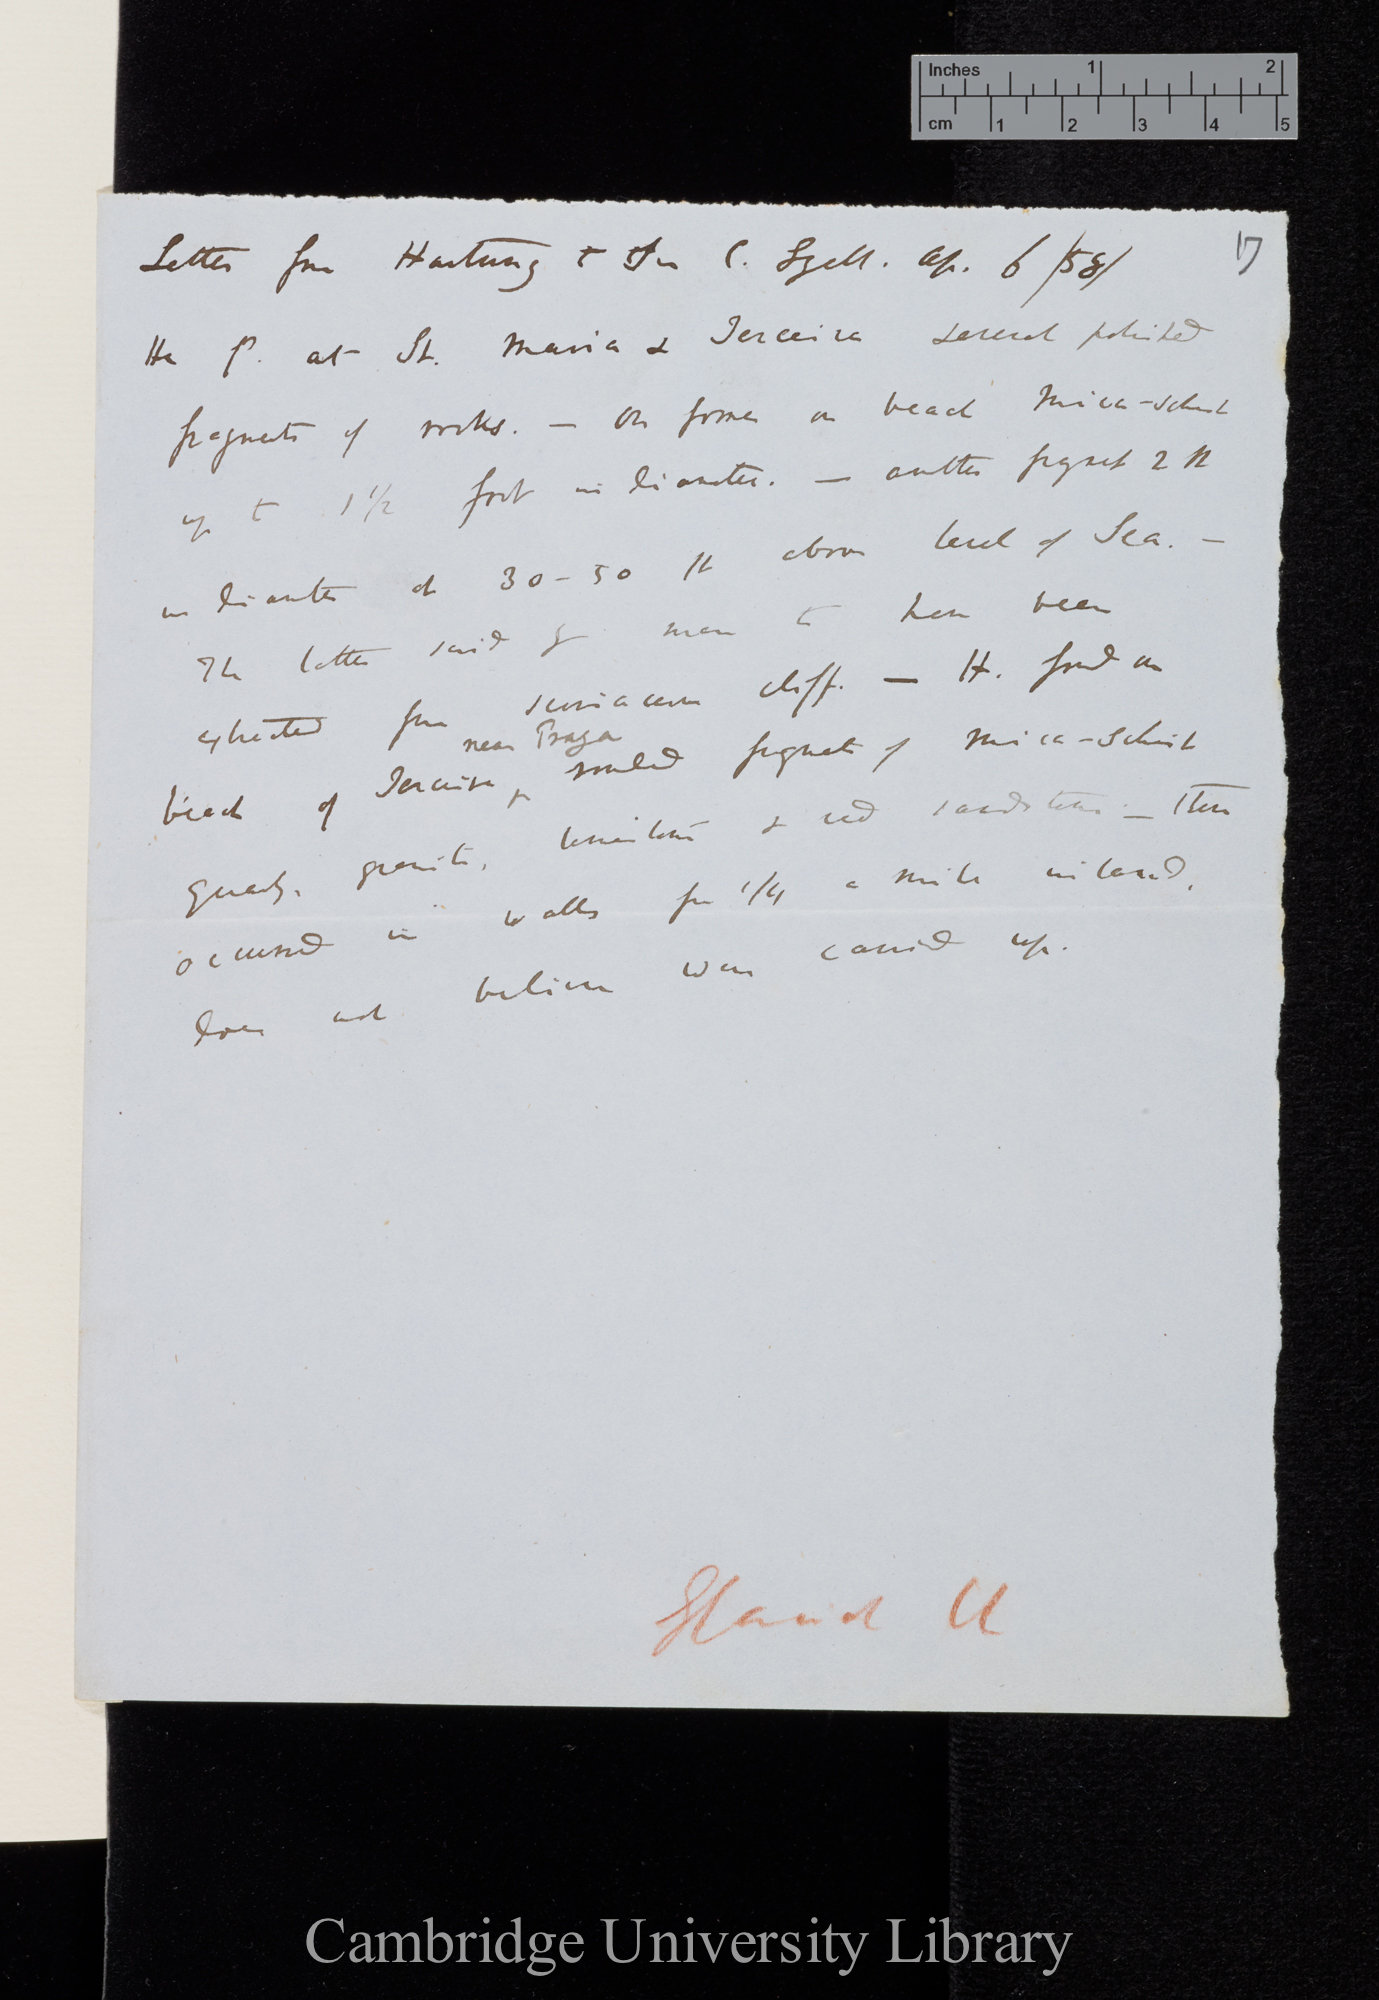 Inches 1 2
cm 1 2 3 4 5
17
Letter from Hartung to Sir C. Lyell. Ap. 6 /58/
He f. at St. Maria & Terceira several polished
fragments of rocks. — On former on beach mica-schist
up to 1 1/2 foot in diameter. — another fragment 2 ft
in diameter at 30-50 ft above level of Sea. —
The latter said by man to have been
extracted from scoriaceous cliff. — H. found on
near Praya
beach of Terceira, rounded fragments of mica-schist
quartz, granite, & red sandstone — These
occurred in walls for 1/4 a mile inland,
does not believe were carried up.
Glacial Ch
Cambridge University Library